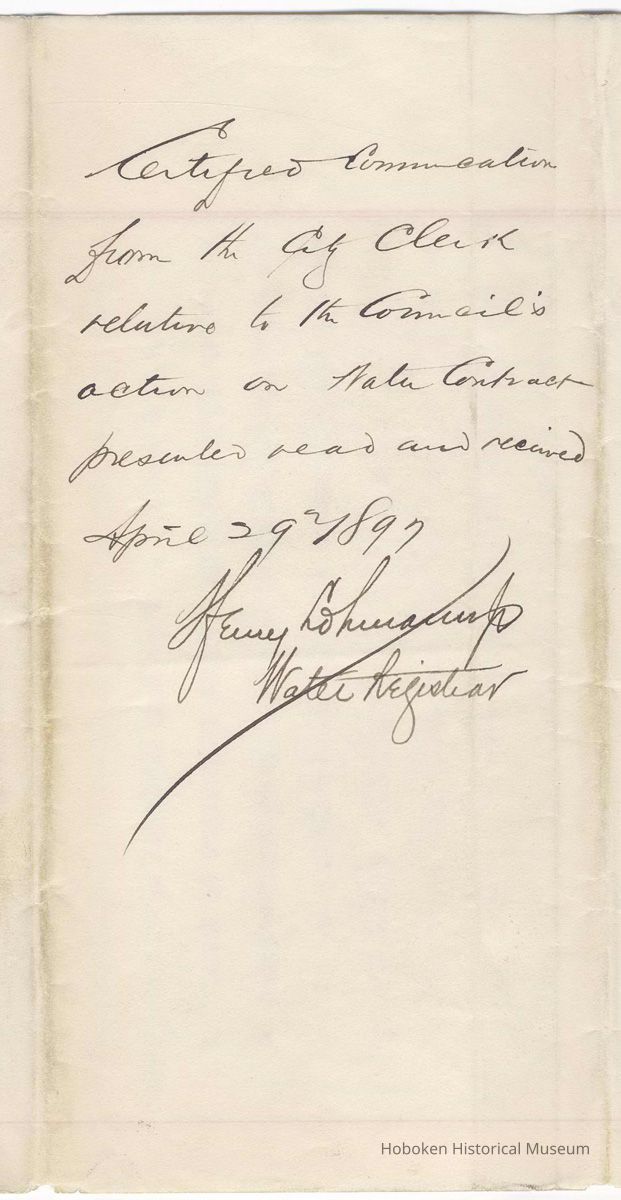 Certified Communication
from the City Clerk
relative to the Council's
action on Water Contract
presented read and received
April 29" 1897
Henry Lohmann Jr
Water Registrar
Hoboken Historical Museum